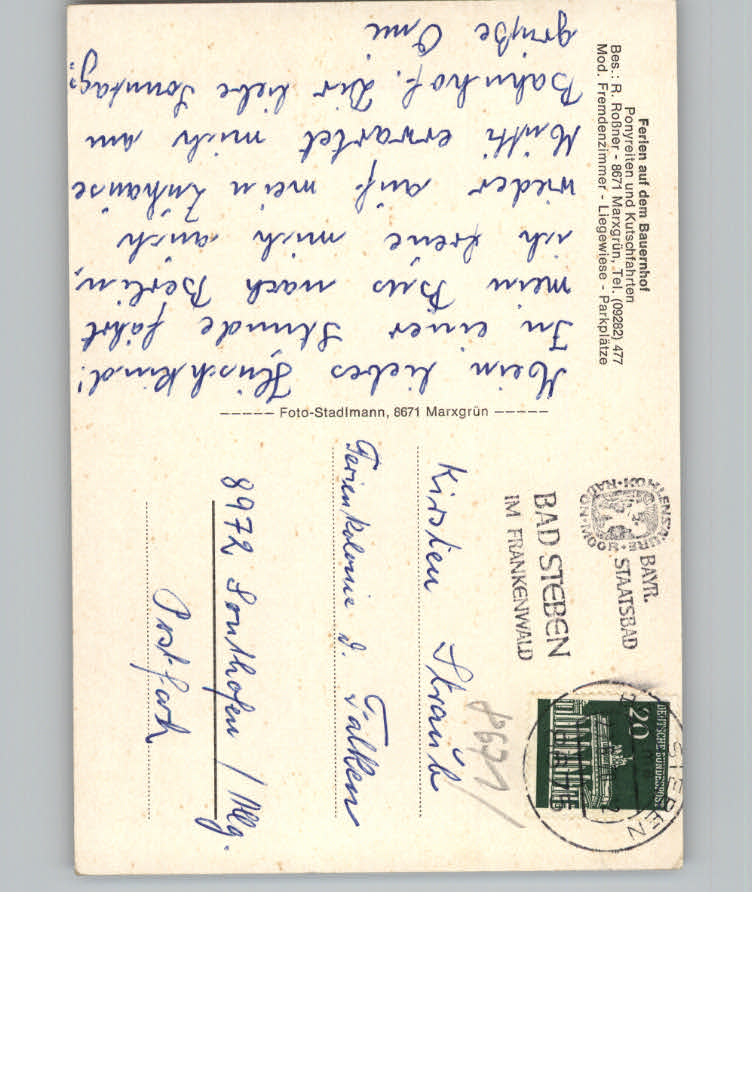 Ferien auf dem Bauernhof
Ponyreiten und Kutschfahrten
Bes.: R. Roßner - 8671 Marxgrün, Tel. (09282) 477
Mod. Fremdenzimmer - Liegewiese - Parkplätze
Mein liebes Huschkind!
In einer Stunde fährt
mein Bus nach Berlin,
ich freue mich auch
wieder auf mein Zuhause
Mutti erwartet mich am
Bahnhof. Dir liebe Sonntags
grüße Omi
Foto-Stadlmann, 8671 Marxgrün
BAYR.
STAATSBAD
BAD STEBEN
IM FRANKENWALD
RADON · MOOR
STEBEN
DEUTSCHE BUNDESPOST
20
8671
Kirsten Straub
Ferienkolonie d. Falken
8972 Sonthofen / Allg.
Postfach